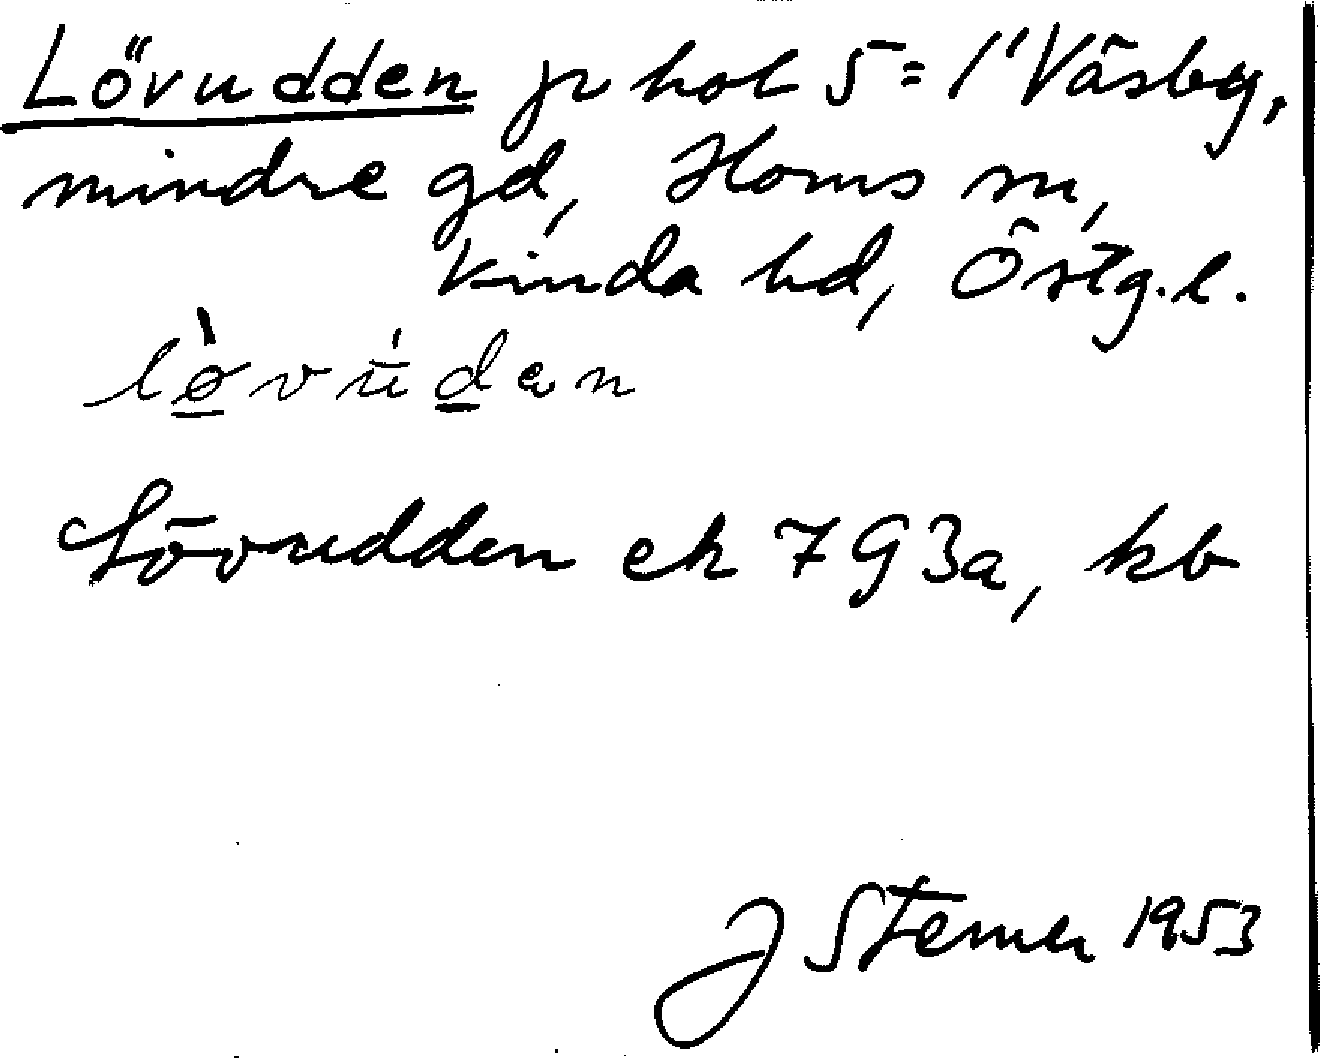 Lövudden jr hot 5 = 1' Väsby,
mindre gd, Horns sn,
Kinda hd, Östg.l.
Lövudden ek 7G3a, kb
J Sterner 1953